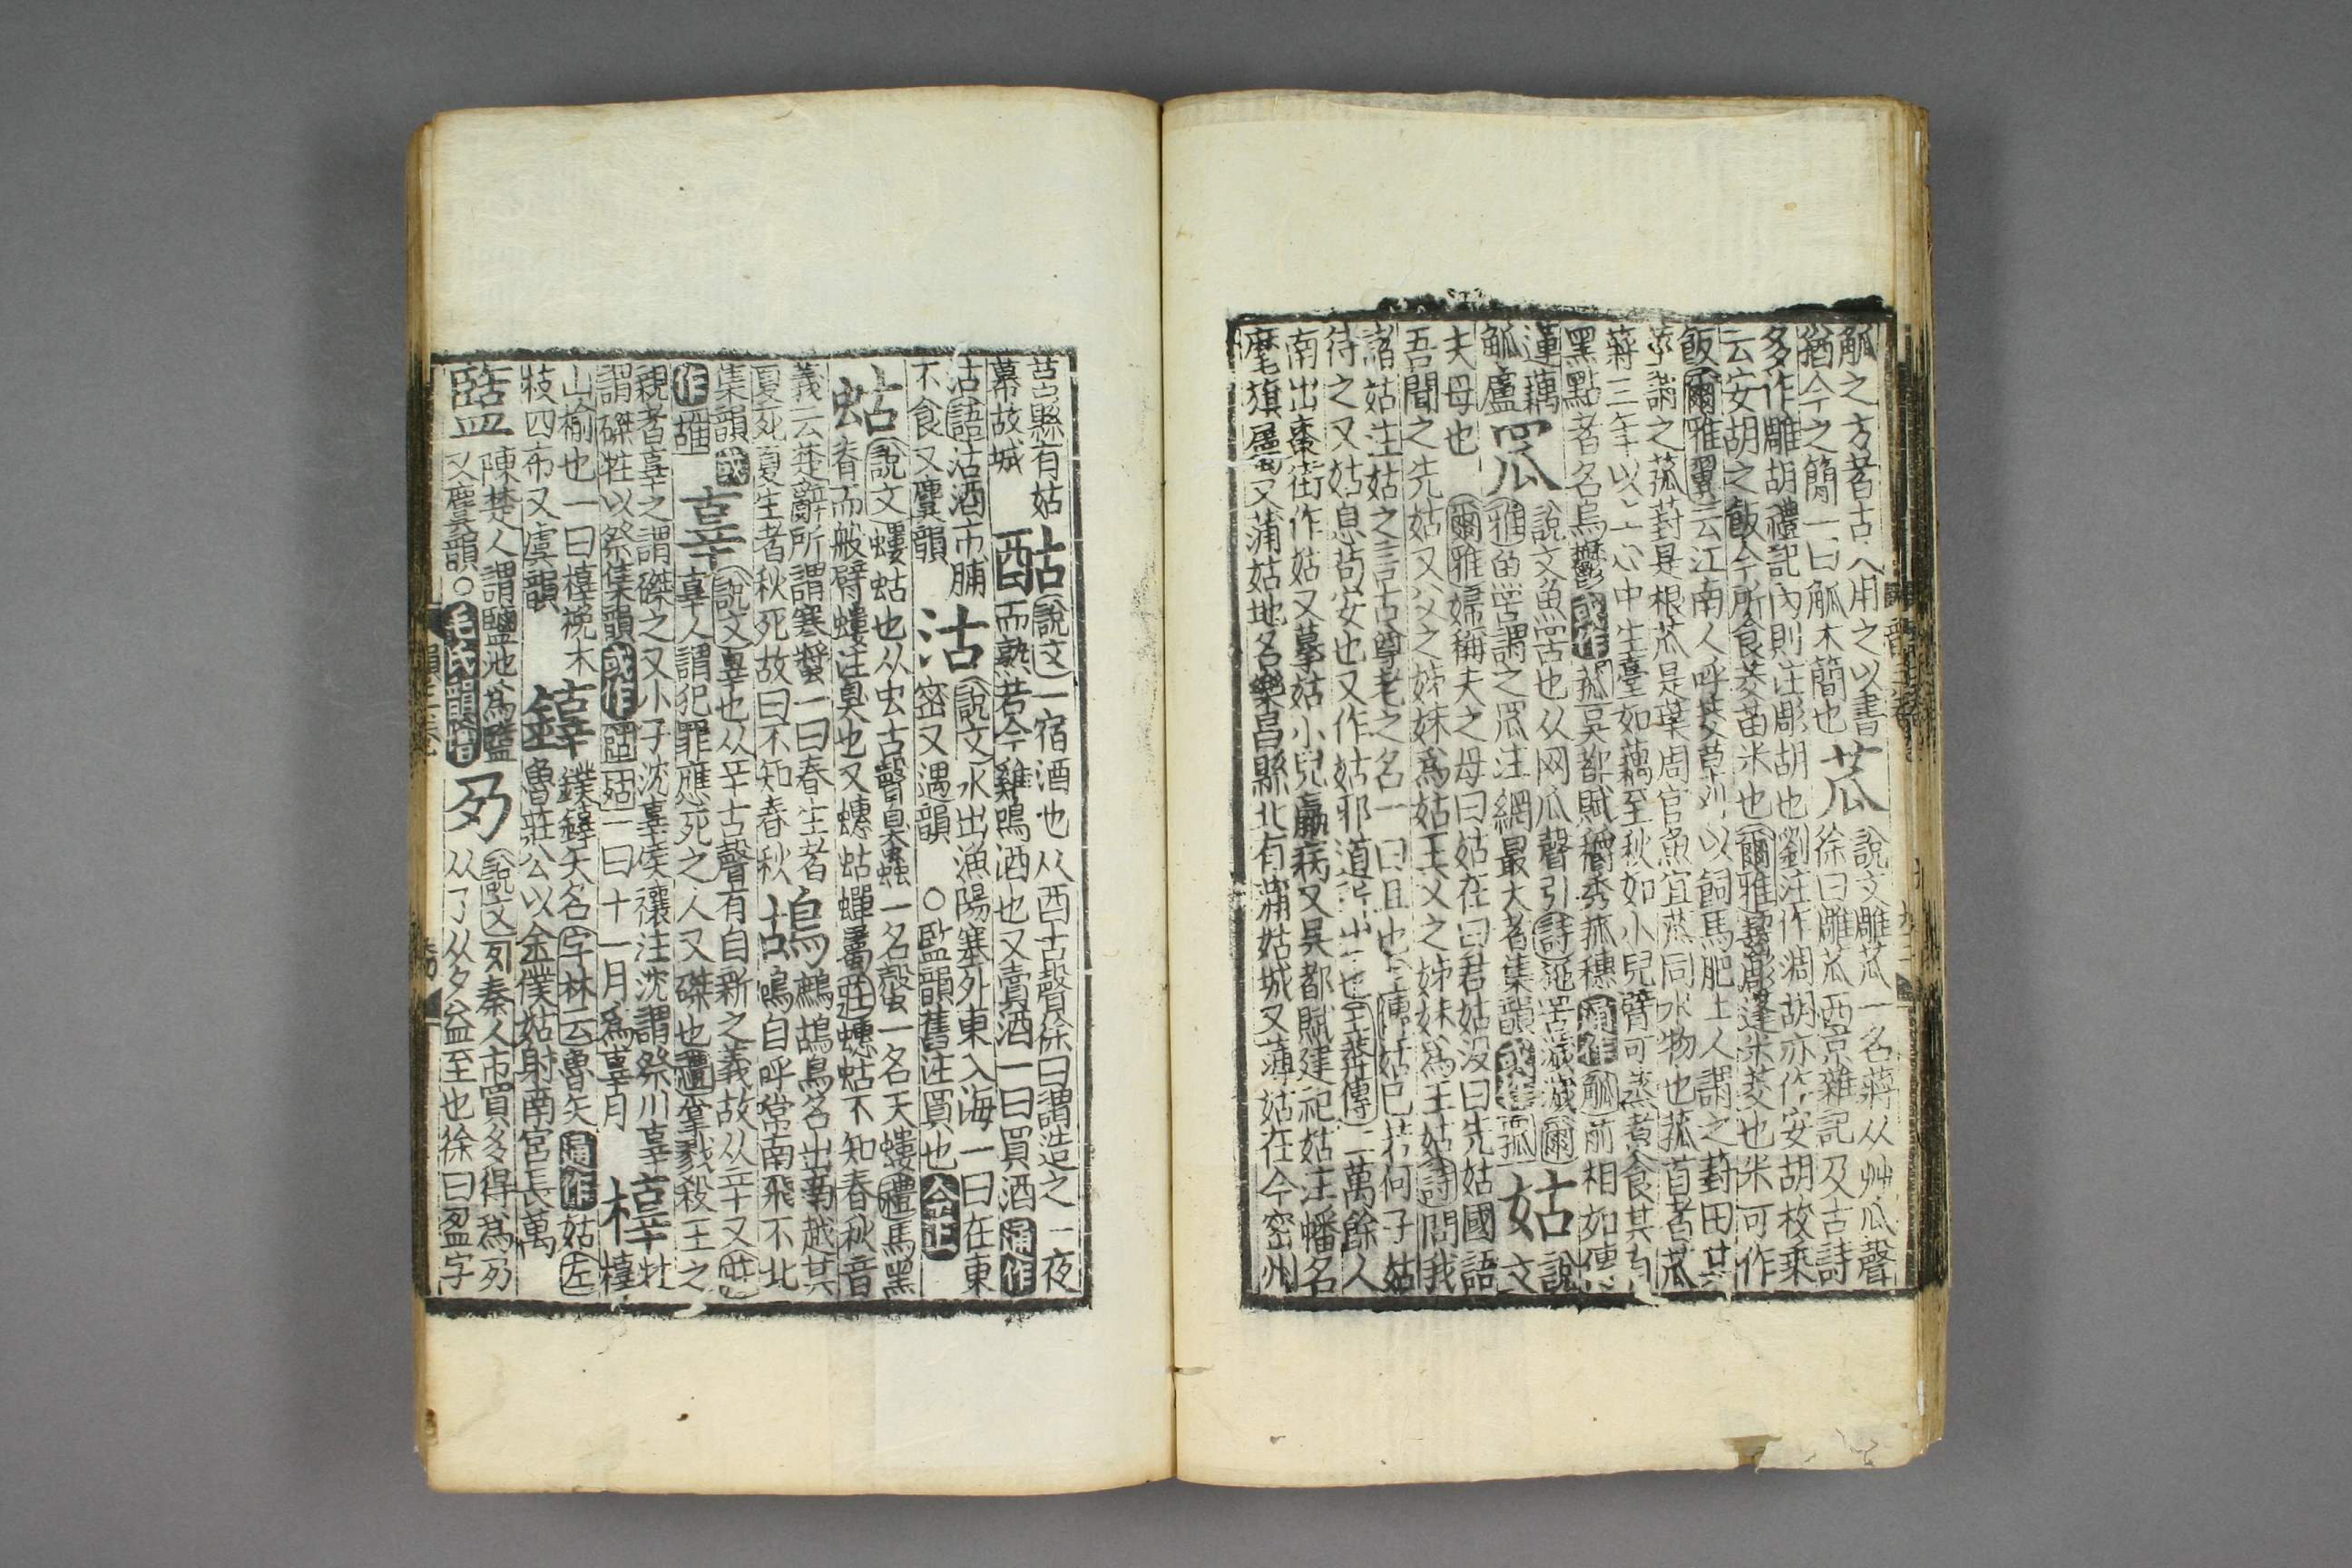 觚之方者古人用之以書
猶今之簡一曰觚木簡也
苽
說文雕苽一名蔣从艸瓜聲
徐曰雕苽西京雜記及古詩
多作雕胡禮記內則注彫胡也劉注作凋胡亦作安胡枚乘
云安胡之飯今所食茭苗米也爾雅蓬米茭也米可作
飯爾雅翼云江南人呼茭草刈以飼馬肥土人謂之葑田其
謂之菰葑是根苽是葉周官魚宜苽同水物也菰首者苽
蔣三年以上心中生臺如藕至秋如小兒臂可蒸煮食其
黑點者名烏鬱或作菰吳都賦穱秀菰穗通作觚前相如傳
蓮藕
觚盧
罛
說文魚罟也从网瓜聲引詩施罛濊濊爾
雅魚罟謂之罛注網最大者集韻或作
姑
說文
夫母也
爾雅婦稱夫之母曰姑在曰君姑沒曰先姑國語
吾聞之先姑又父之姊妹爲姑王父之姊妹爲王姑詩問我
諸姑注姑之言古尊老之名一曰且也陳姑巳若何子姑
待之又姑息苟安也又作姑邪道王莽傳二萬餘人
南出棗街作姑又摹姑小兒羸病又吳都賦建祀姑注幡名
麾旗屬又蒲姑地名樂昌縣北有蒲姑城又薄姑在今密州
莒縣有姑
幕故城
酤
說文一宿酒也从酉古聲徐曰謂造之一夜
而熟若今雞鳴酒也又賣酒一曰買酒通作
沽語沽酒市脯
不食又麌韻
沽
說文水出漁陽塞外東入海一曰在東
密又遇韻○監韻舊注買也今正
蛄
說文螻蛄也从虫古聲臭蟲一名㲉一名天螻禮馬黑
脊而般臂螻注臭也又蟪蛄蟬屬莊蟪蛄不知春秋音
義云楚辭所謂寒螿一曰春生者
夏死夏生者秋死故曰不知春秋
鴣
鷓鴣鳥名出南越其
鳴自呼常南飛不北
集韻或
作䧸
辜
說文辠也从辛古聲有自新之義故从辛又莊
辜人謂犯罪應死之人又磔也禮掌戮殺王之
親者辜之謂磔之又小子沈辜侯禳注沈謂祭川辜
謂磔牲以祭集韻或作一曰十一月爲辜月
橭
山榆也一曰橭
枝四布又虞韻
鈷
鏷矢名字林云魯矢通作姑左
魯莊公以金僕姑射南宮長萬
盬
陳楚人謂鹽池爲盬
又麌韻○毛氏韻增
夃
說文秦人市買多得爲夃
从了从夕益至也徐曰盈字